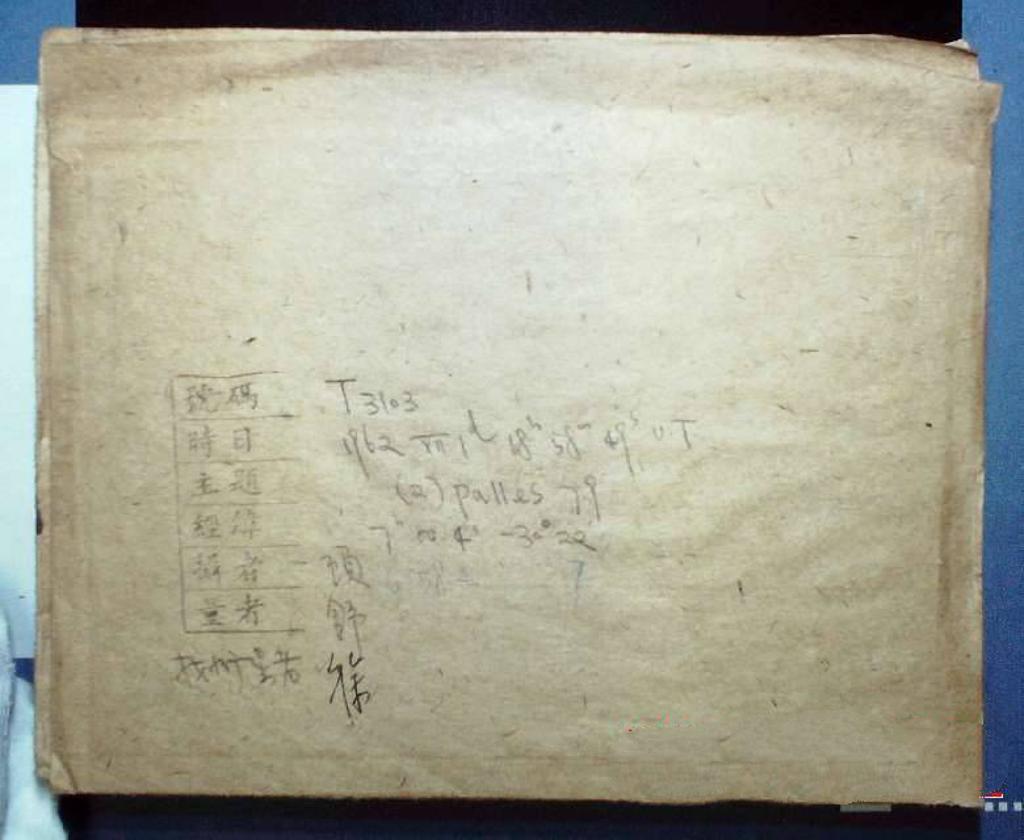 號碼 T 3103
時日 1962 VII 1d 18h 58m 49s U.T
主題 (2) palles 79
經緯 7h 00 4s -30° 22
攝者 須
量者 舒
找星者 徐